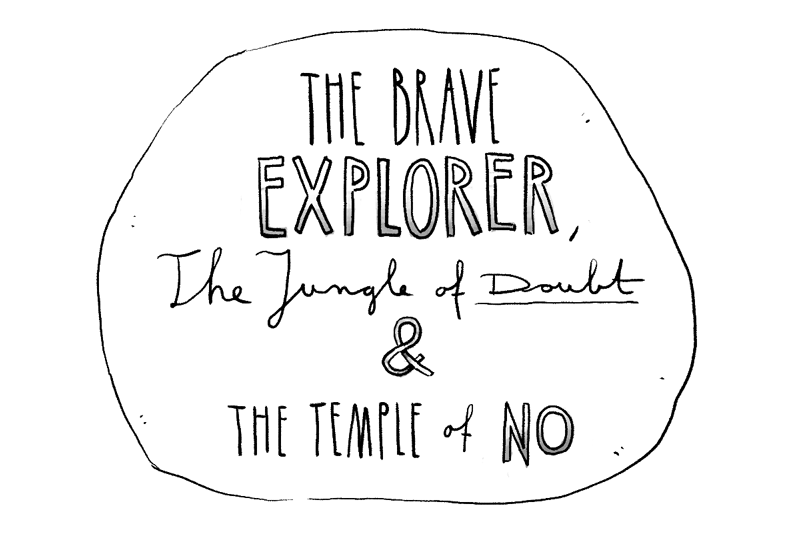 THE BRAVE
EXPLORER,
The Jungle of Doubt
&
THE TEMPLE of NO